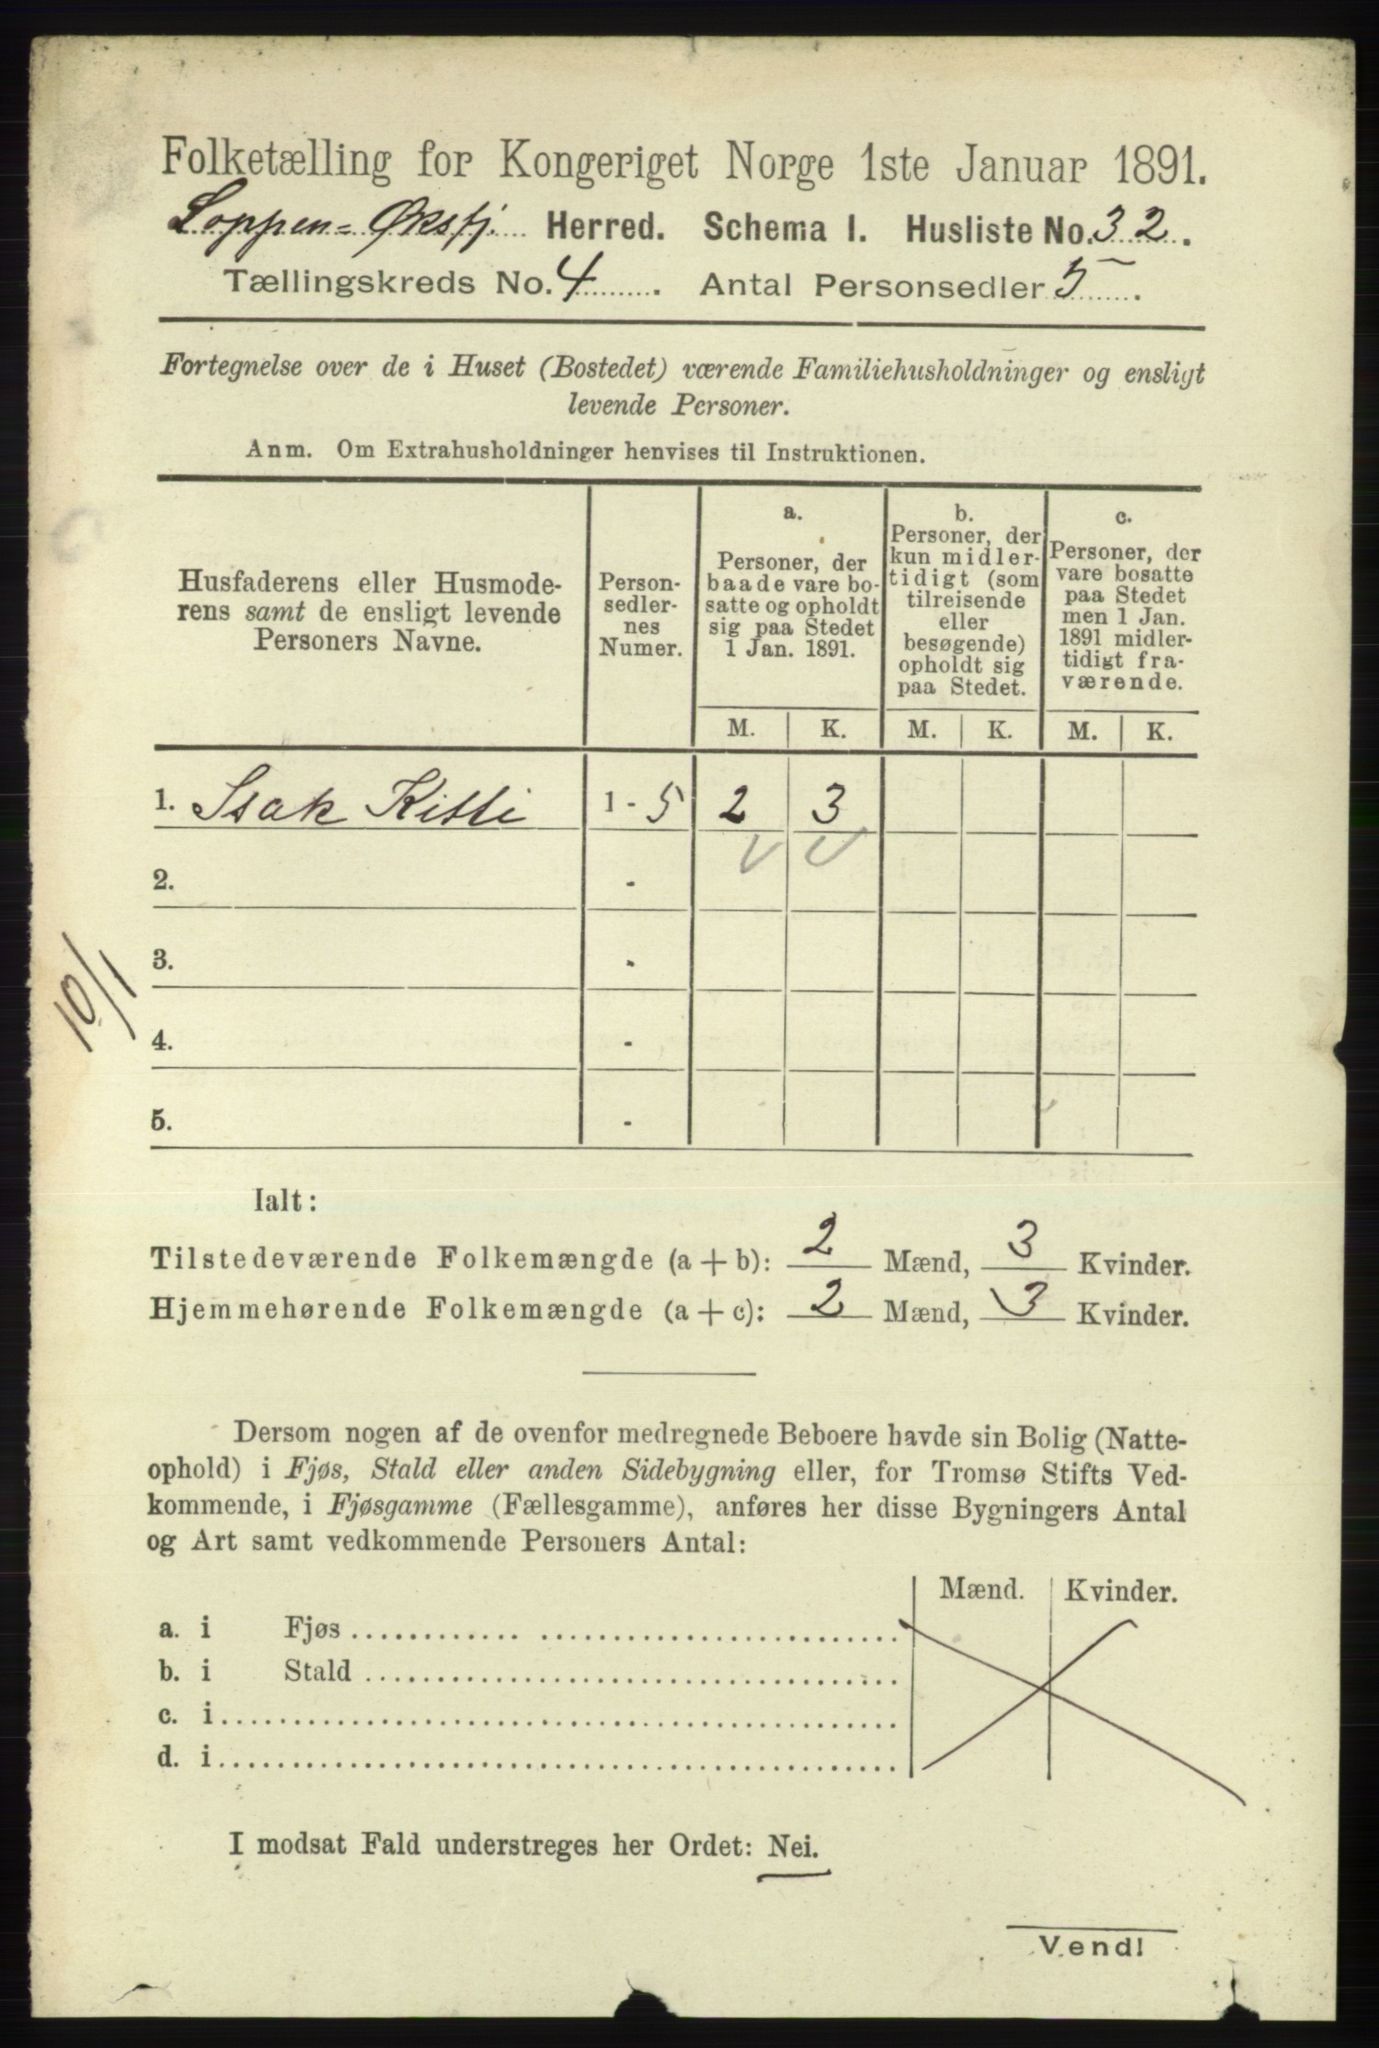 Folketælling for Kongeriget Norge 1ste Januar 1891.
Loppen=Øksfj. Herred. Schema I. Husliste No. 32.
Tællingskreds No. 4. Antal Personsedler 5.
Fortegnelse over de i Huset (Bostedet) værende Familiehusholdninger og ensligt
levende Personer.
Anm. Om Extrahusholdninger henvises til Instruktionen.
Husfaderens eller Husmode-
rens samt de ensligt levende
Personers Navne.
Person-
sedler-
nes
Numer.
a.
Personer, der
baade vare bo-
satte og opholdt
sig paa Stedet
1 Jan. 1891.
b.
Personer, der
kun midler-
tidigt (som
tilreisende
eller
besøgende)
opholdt sig
paa Stedet.
c.
Personer, der
vare bosatte
paa Stedet
men 1 Jan.
1891 midler-
tidigt fra-
værende.
M. K. M. K. M. K.
1. Isak Kitti 1 - 5 2 3
2. -
3. -
10/1
4. -
5. -
Ialt:
Tilstedeværende Folkemængde (a + b): 2 Mænd, 3 Kvinder.
Hjemmehørende Folkemængde (a + c): 2 Mænd, 3 Kvinder.
Dersom nogen af de ovenfor medregnede Beboere havde sin Bolig (Natte-
ophold) i Fjøs, Stald eller anden Sidebygning eller, for Tromsø Stifts Ved-
kommende, i Fjøsgamme (Fællesgamme), anføres her disse Bygningers Antal
og Art samt vedkommende Personers Antal:
Mænd. Kvinder.
a. i Fjøs
b. i Stald
c. i
d. i
I modsat Fald understreges her Ordet: Nei.
Vend!